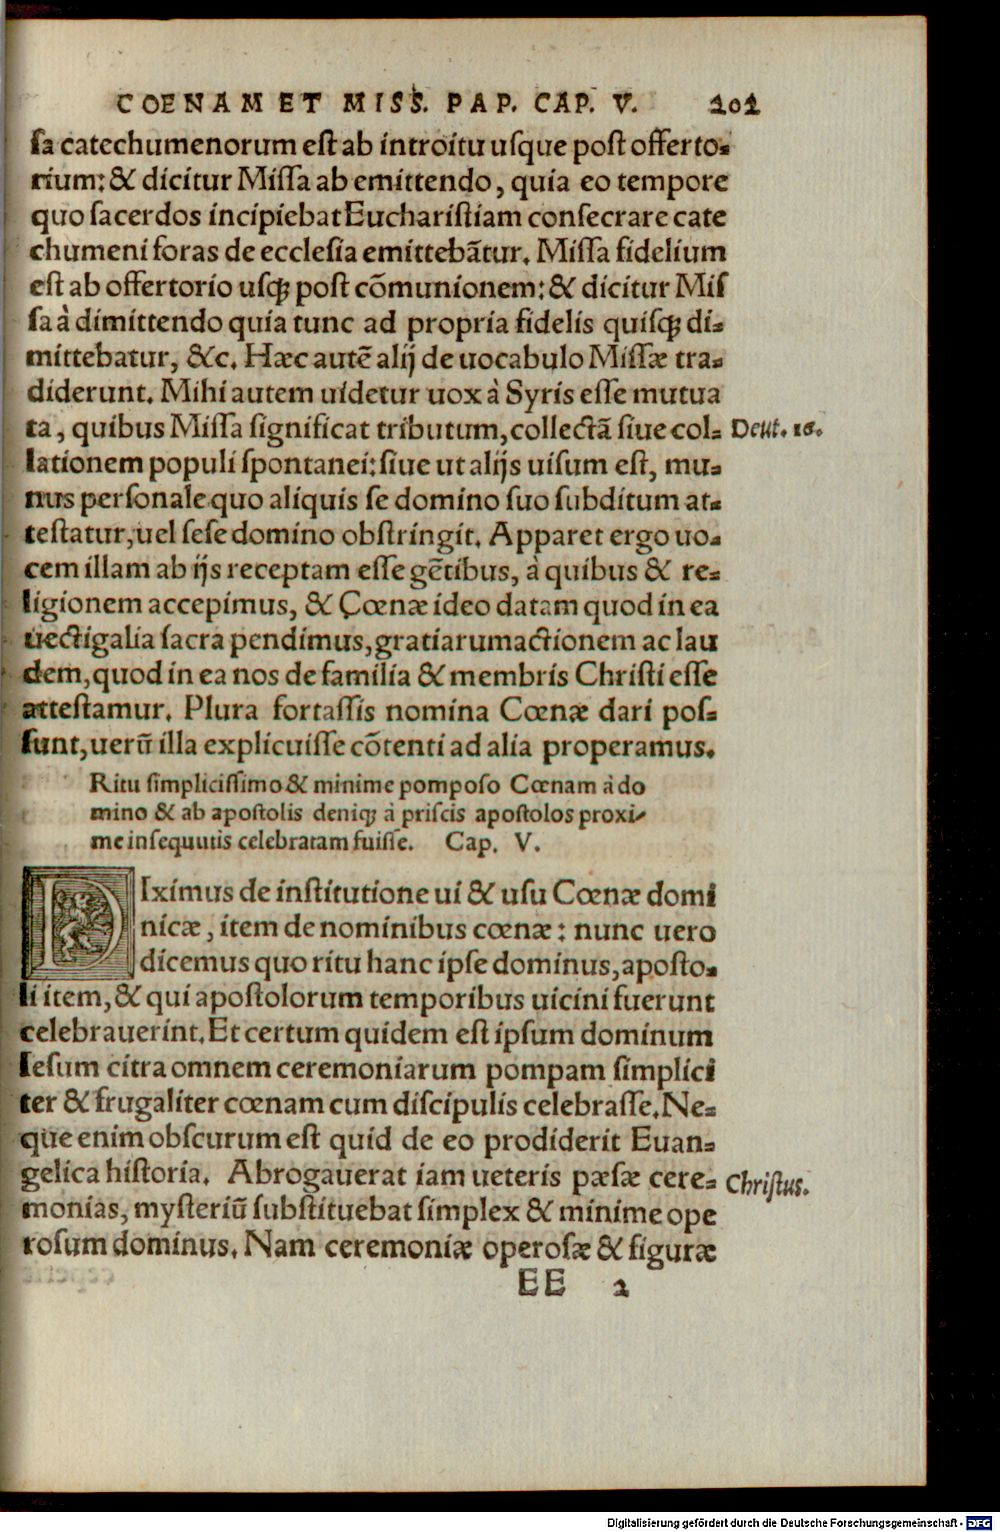 COENAM ET MISS. PAP. CAP. V. 101
ſa catechumenorum eſt ab introitu uſque poſt offerto-
rium: & dicitur Miſſa ab emittendo, quia eo tempore
quo ſacerdos incipiebat Euchariſtiam conſecrare cate
chumeni foras de eccleſia emittebãtur. Miſſa fidelium
eſt ab offertorio uſq; poſt cõmunionem: & dicitur Miſ
ſa à dimittendo quia tunc ad propria fidelis quiſq; di-
mittebatur, &c. Hæc autẽ alij de uocabulo Miſſæ tra-
diderunt. Mihi autem uidetur uox à Syris eſſe mutua
ta, quibus Miſſa ſignificat tributum, collectã ſiue col- Deut. 16.
lationem populi ſpontanei: ſiue ut alijs uiſum eſt, mu-
nus perſonale quo aliquis ſe domino ſuo ſubditum at-
teſtatur, uel ſeſe domino obſtringit. Apparet ergo uo-
cem illam ab ijs receptam eſſe gẽtibus, à quibus & re-
ligionem accepimus, & Cœnæ ideo datam quod in ea
uectigalia ſacra pendimus, gratiarumactionem ac lau
dem, quod in ea nos de familia & membris Chriſti eſſe
atteſtamur. Plura fortaſſis nomina Cœnæ dari poſ-
ſunt, uerũ illa explicuiſſe cõtenti ad alia properamus.
Ritu ſimpliciſſimo & minime pompoſo Cœnam à do
mino & ab apoſtolis deniq; à priſcis apoſtolos proxi-
me inſequutis celebratam fuiſſe. Cap. V.
DIximus de inſtitutione ui & uſu Cœnæ domi
nicæ, item de nominibus cœnæ: nunc uero
dicemus quo ritu hanc ipſe dominus, apoſto-
li item, & qui apoſtolorum temporibus uicini fuerunt
celebrauerint. Et certum quidem eſt ipſum dominum
Ieſum citra omnem ceremoniarum pompam ſimplici
ter & frugaliter cœnam cum diſcipulis celebraſſe. Ne-
que enim obſcurum eſt quid de eo prodiderit Euan-
gelica hiſtoria. Abrogauerat iam ueteris pæſæ cere- Chriſtus.
monias, myſteriũ ſubſtituebat ſimplex & minime ope
roſum dominus. Nam ceremoniæ operoſæ & figuræ
EE 2
Digitalisierung gefördert durch die Deutsche Forschungsgemeinschaft - DFG